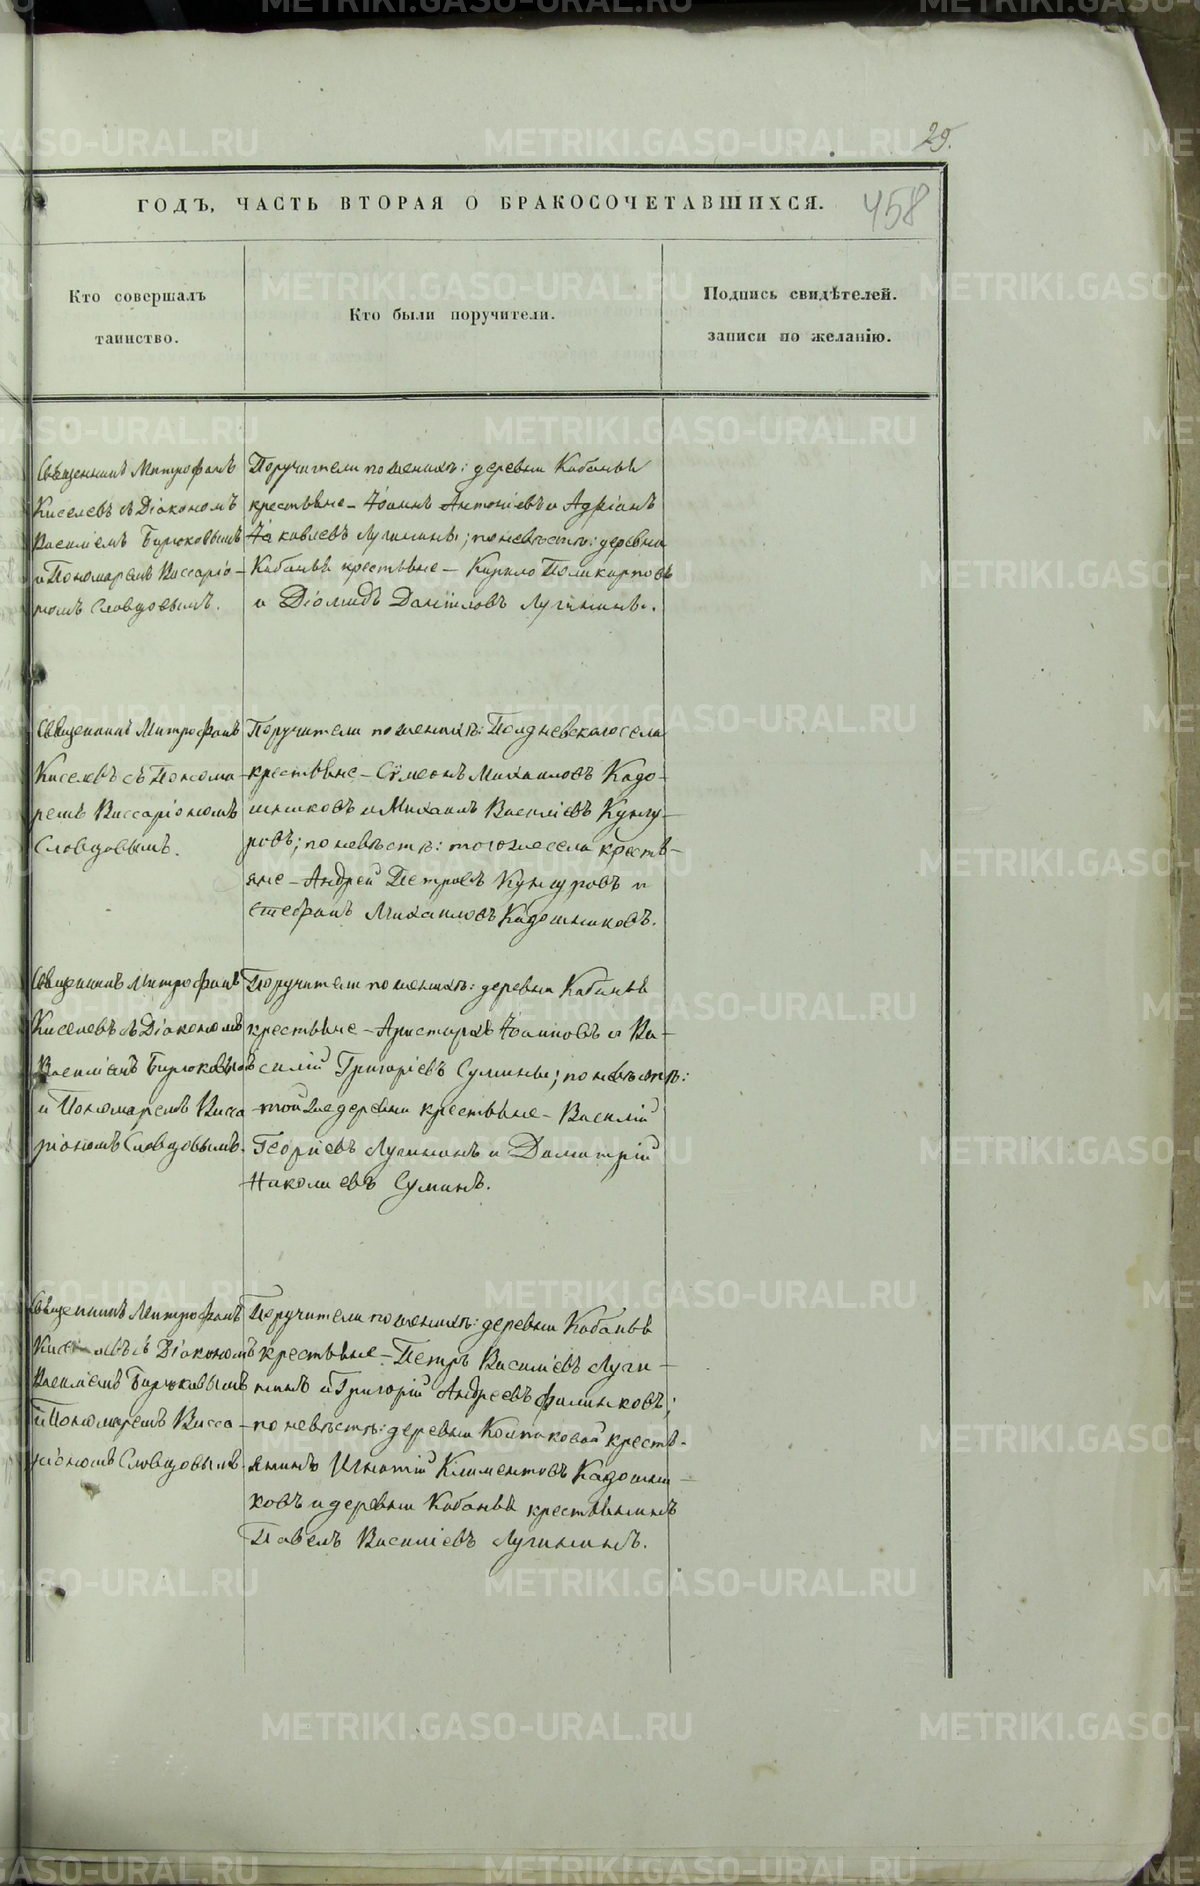 29.
ГОДЪ, ЧАСТЬ ВТОРАЯ О БРАКОСОЧЕТАВШИХСЯ.
458
Кто совершалъ
таинство.
Кто были поручители.
Подпись свидѣтелей.
записи по желанію.
Священникъ Митрофанъ
Киселевъ съ Діакономъ
Василіемъ Бирюковымъ
и Пономаремъ Виссаріо-
номъ Словцовымъ.
Поручители по женихѣ: деревни Кабаньѣ
крестьяне – Іоаннъ Антоніевъ и Адріанъ
Іаковлевъ Лугинины; по невѣстѣ: деревни
Кабаньѣ крестьяне – Кирило Поликарповъ
и Діомидъ Даніиловъ Лугинины.
Священникъ Митрофанъ
Киселевъ съ Понома-
ремъ Виссаріономъ
Словцовымъ.
Поручители по женихѣ: Полдневскаго села
крестьяне – Сѵмеонъ Михаиловъ Кадо-
шниковъ и Михаилъ Василіевъ Кунгу-
ровъ; по невѣстѣ: того же села кресть-
яне – Андрей Петровъ Кунгуровъ и
Стефанъ Михаиловъ Кадошниковъ.
Священникъ Митрофанъ
Киселевъ съ Діакономъ
Василіемъ Бирюковымъ
и Пономаремъ Висса-
ріономъ Словцовымъ.
Поручители по женихѣ: деревни Кабаньѣ
крестьяне – Аристархъ Іоанновъ и Ва-
силій Григоріевъ Сумины; по невѣстѣ:
той же деревни крестьяне – Василій
Георгіевъ Лугининъ и Димитрій
Николаевъ Суминъ.
Священникъ Митрофанъ
Киселевъ съ Діакономъ
Василіемъ Бирюковымъ
и Пономаремъ Висса-
ріономъ Словцовымъ.
Поручители по женихѣ: деревни Кабаньѣ
крестьяне – Петръ Василіевъ Луги-
нинъ и Григорій Андреевъ Филинковъ;
по невѣстѣ: деревни Колпаковой кресть-
янинъ Игнатій Климентовъ Кадошни-
ковъ и деревни Кабаньѣ крестьянинъ
Павелъ Василіевъ Лугининъ.
METRIKI.GASO-URAL.RU